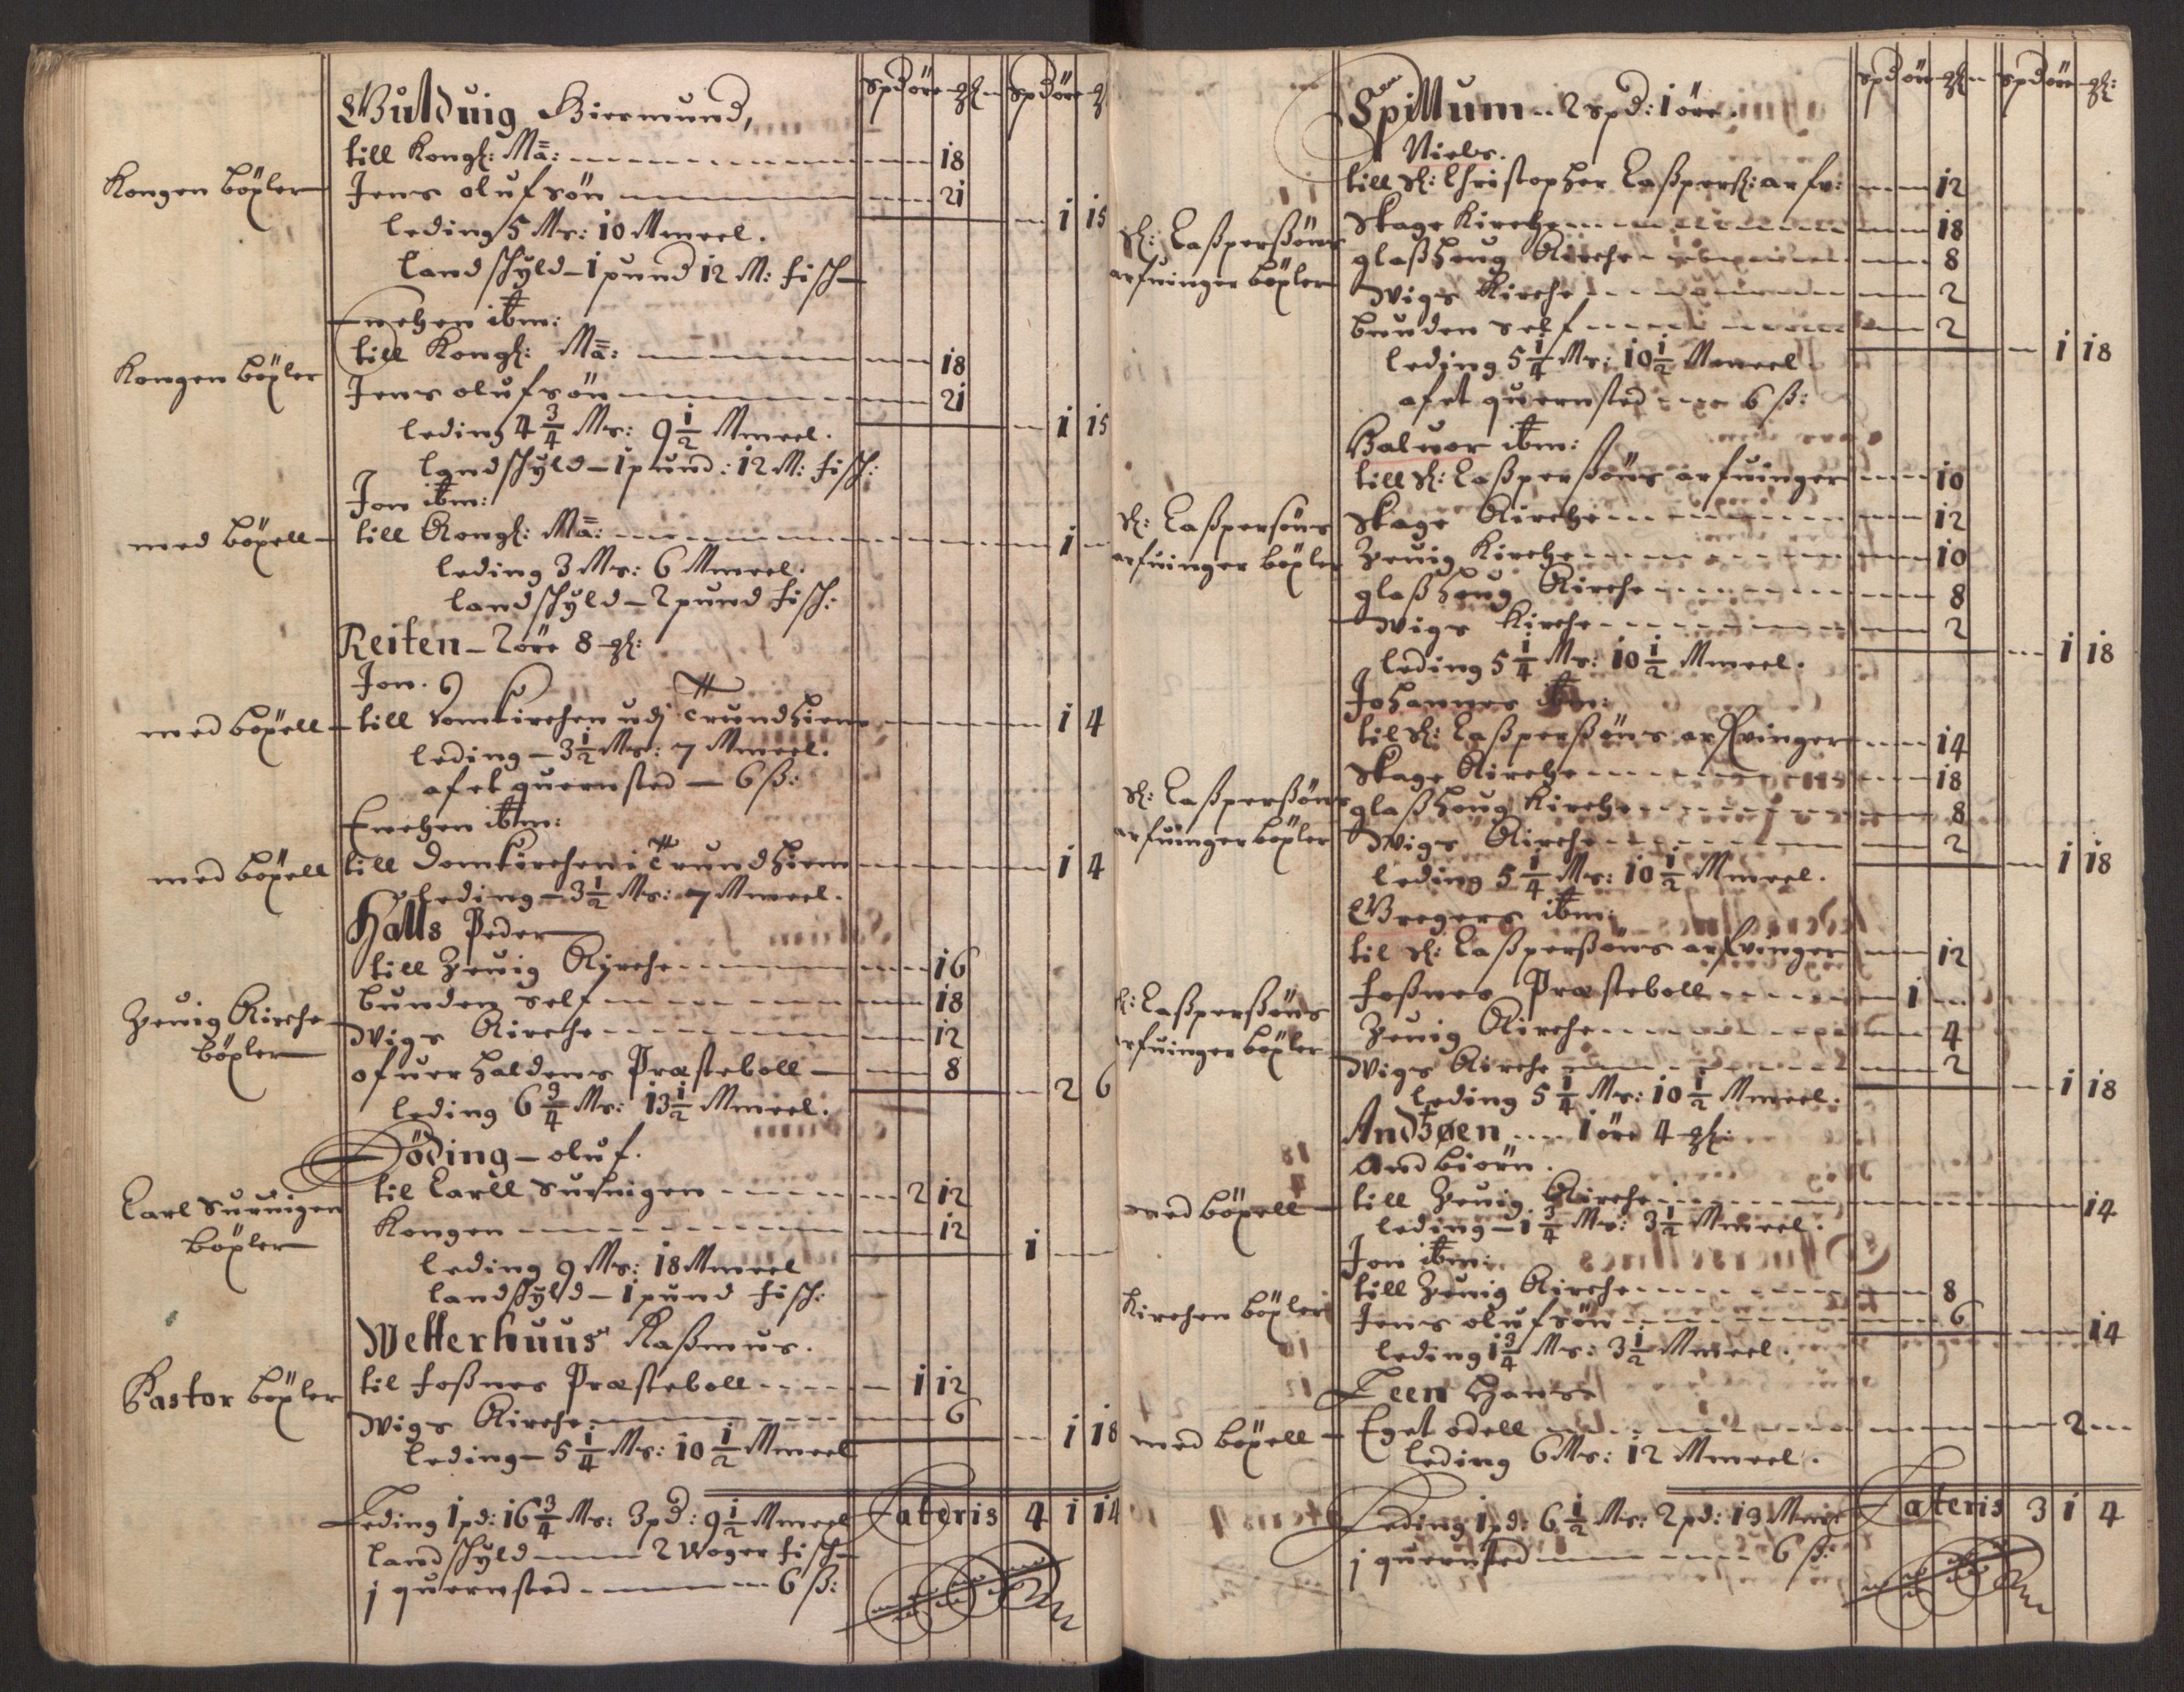 spd öre gl: spd öre gl
Gulduig Giermund,
till Kongl: Ma: 18
Kongen böxler
Jens olufsön 21
1 15
leding 5 Mr: 10 Mmeel.
landskyld 1 pund 12 M: fisk
Enchen ibm:
till Kongl: Ma: 18
Kongen böxler
Jens olufsön 21
1 15
leding 4 3/4 Mr: 9 1/2 Mmeel.
landskyld 1 pund: 12 M: fisk:
Jon ibm:
med böxell till Kongl: Ma: 1
leding 3 Mr: 6 Mmeel.
landskyld 2 pund fisk:
Reiten 2 öre 8 gl:
Jon.
med böxell till Domkirchen udj Trundhiem 1 4
leding 3 1/2 Mr: 7 Mmeel.
afet quernsted 6 ß:
Enchen ibm:
med böxell till Domkirchen i Trundhiem 1 4
leding 3 1/2 Mr: 7 Mmeel.
Halls Peder
till Zeuig Kirche 16
Zeuig Kirche böxler
bunden self 18
Wigs Kirche 12
ofuerhaldens Præsteboll 8
2 6
leding 6 3/4 Mr: 13 1/2 Mmeel.
Döding oluf.
Carl Suruigen böxler
til Carll Suruigen 2 12
Kongen 12
1
leding 9 Mr: 18 Mmeel
landskyld 1 pund fisk:
Wetterhuus Raßmus.
Pastor böxler
til foßnes Præsteboll 1 12
Wigs Kirche 6
1 18
leding 5 1/4 Mr: 10 1/2 Mmeel
Leding 1 pd: 16 3/4 Mr: 3 pd: 9 1/2 Mmeel Lateris 4 1 14
landskyld 2 Woger fisk
j quernsted 6 ß:
spd öre gl: spd öre gl:
Spillum 2 spd: 1 öre.
Niels.
till Sl: Christopher Caßpersl: arfv: 12
Sl: Caßpersöns arfuinger böxler
Skage Kirche 18
glaßhoug Kirche 8
Wigs Kirche 2
bunden self 2
1 18
leding 5 1/4 Mr: 10 1/2 Mmeel.
afet quernsted 6 ß:
Haluor ibm:
till Sl: Caßpersöns arfuinger 10
Sl: Caßpersöns arfuinger böxler
Skage Kirche 12
Zeuig Kirche 10
glaßhoug Kirche 8
Wigs Kirche 2
1 18
leding 5 1/4 Mr: 10 1/2 Mmeel.
Johannes ibm:
til Sl: Caßperßöns arfvinger 14
Sl: Caßperßöns arfuinger böxler
Skage Kirche 18
glaßhoug Kirche 8
Wigs Kirche 2
1 18
leding 5 1/4 Mr: 10 1/2 Mmeel.
Gregers ibm:
til Sl: Caßperßöns arfvinger 12
Sl: Caßperßöns arfuinger böxler
foßnes Præsteboll 1
Zeuig Kirche 4
Wigs Kirche 2
1 18
leding 5 1/4 Mr: 10 1/2 Mmeel.
Andzøen 1 öre 4 gl:
Andbiörn.
med böxell till Zeuig Kirche 14
leding 1 3/4 Mr: 3 1/2 Mmeel.
Jon ibm:
till Zeuig Kirche 8
Kirchen böxler
Jens olufsön 6
14
leding 1 3/4 Mr: 3 1/2 Mmeel.
Leen Hans
med böxell Eget odell 2
leding 6 Mr: 12 Mmeel.
Leding 1 pd: 6 1/2 Mr: 2 pd: 13 Mmel Lateris 3 1 4
j quernsted 6 ß: